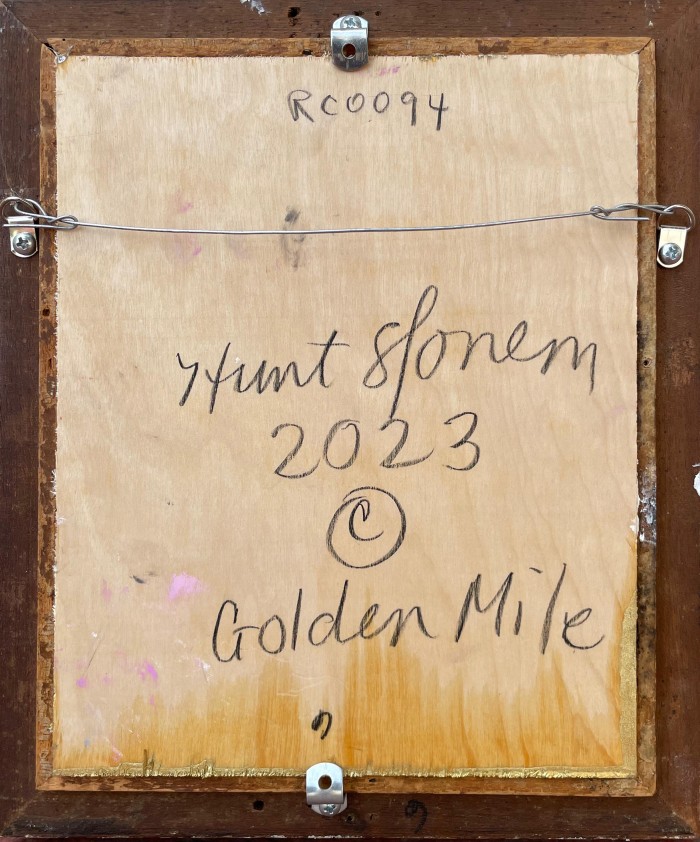 RCO094
Hunt Slonem
2023
©
Golden Mile